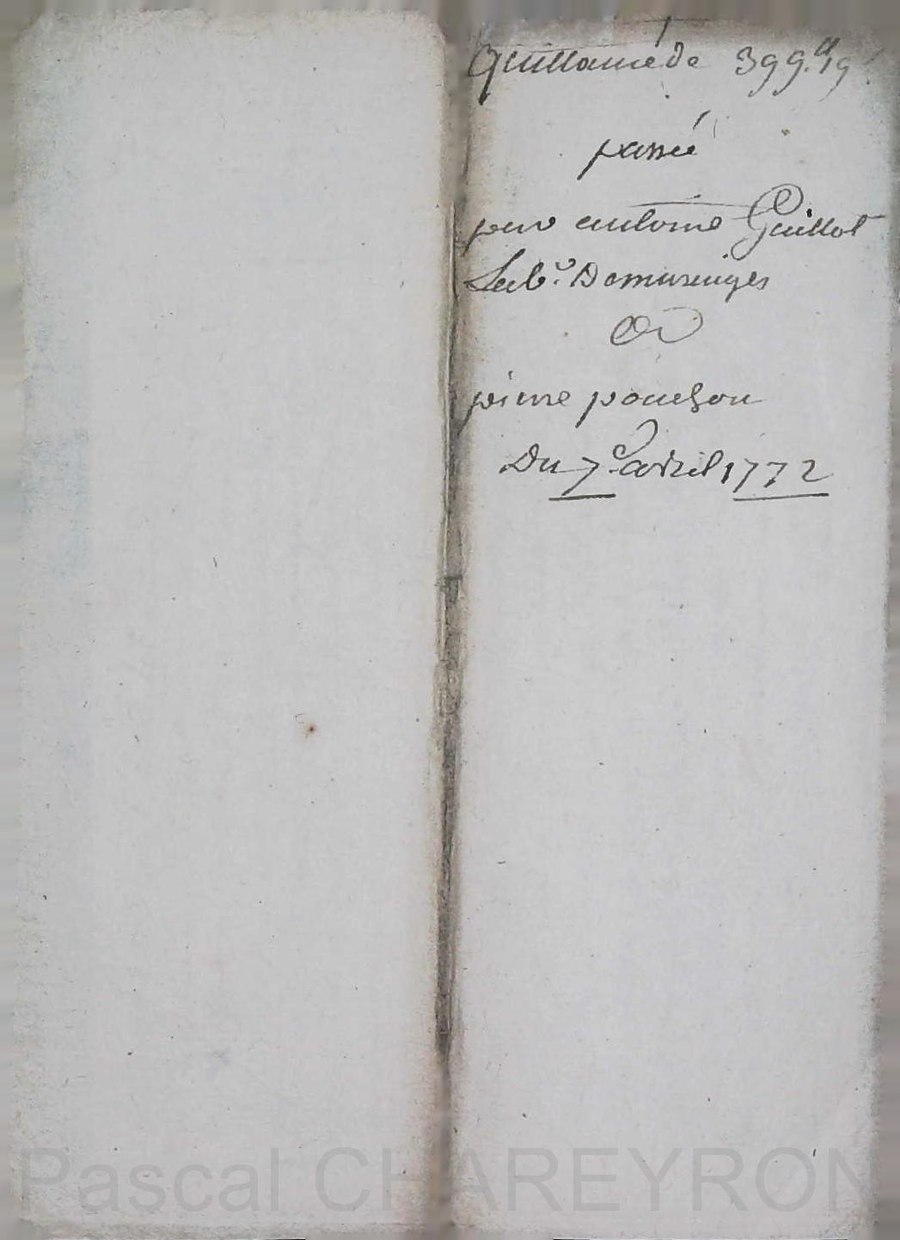 Quittance de 399.ll 19
passée
par antoine Guillot
Lab.r Demurenges
a
pierre pouchon
Du 7.e avril 1772
Pascal CHAREYRON